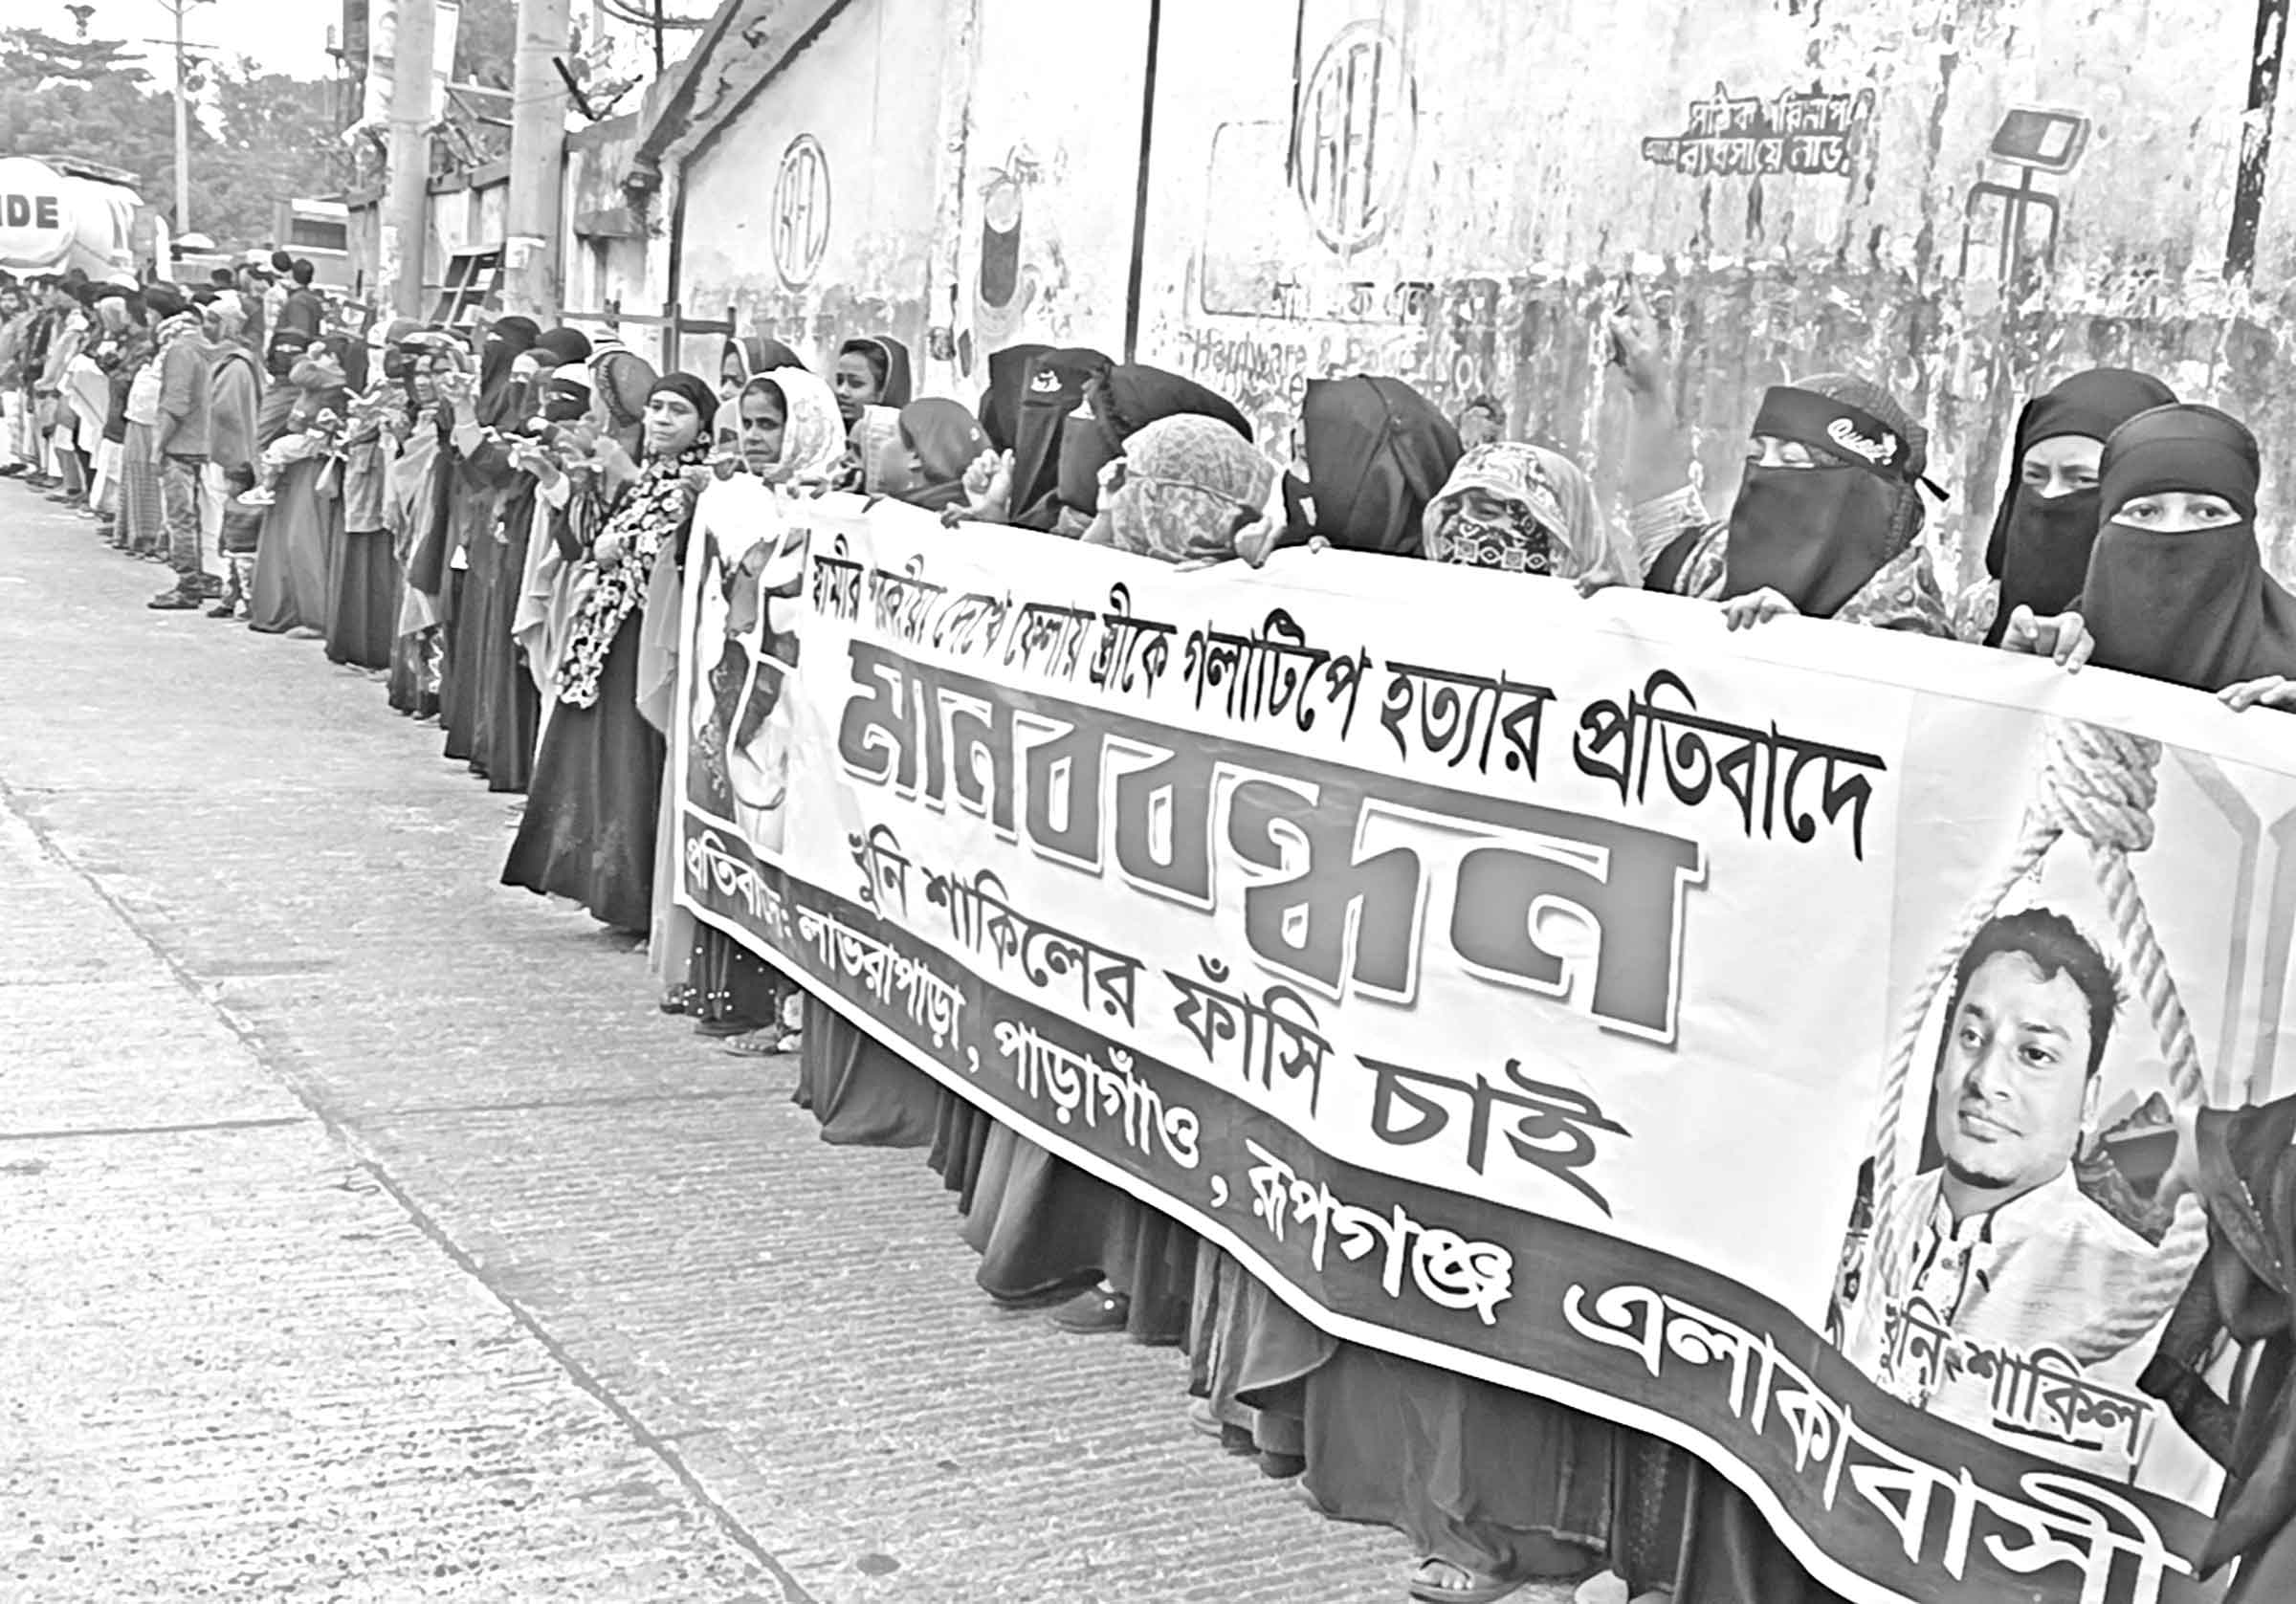 IDE
RFL
RFL
সঠিক পরিমাপে
ব্যবসায়ে লাভ
Quee
স্বামীর পরকীয়া দেখে ফেলায় স্ত্রীকে গলাটিপে হত্যার প্রতিবাদে
মানববন্ধন
খুনি শাকিলের ফাঁসি চাই
খুনি শাকিল
লাভরাপাড়া, পাড়াগাঁও, রূপগঞ্জ এলাকাবাসী